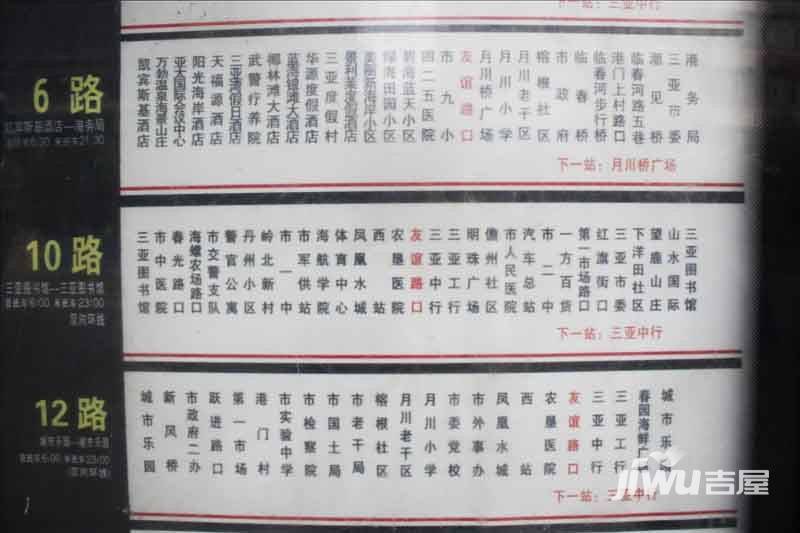 下一站：三亚中行
6 路
凯宾斯基酒店—港务局
凯宾斯基酒店
万勃温泉海景山庄
亚太国际会议中心
阳光海岸酒店
天福源酒店
三亚湾假日酒店
武警疗养院
椰林滩大酒店
蓝海银滩大酒店
华源度假酒店
三亚度假村
碧海蓝天小区
四二五医院
市九小
友谊路口
月川桥广场
月川小学
月川老干区
榕根社区
市政府
临春桥
临春河步行桥
港门上村路口
临春河路五巷
潮见桥
三亚市委
港务局
下一站：月川桥广场
10 路
三亚图书馆—三亚图书馆
首班车6:00 末班车23:00
双向环线
三亚图书馆
市中医院
春光路口
海螺农场路口
市交警支队
警官公寓
丹州小区
岭北新村
市一中
市军供站
海航学院
体育中心
凤凰水城
西站
农垦医院
友谊路口
三亚中行
三亚工行
明珠广场
儋州社区
市人民医院
汽车总站
市二中
一方百货
第一市场路口
红旗街口
三亚市委
下洋田社区
望鹿山庄
山水国际
三亚图书馆
下一站：三亚中行
12 路
城市乐园—城市乐园
首班车6:00 末班车23:00
(双向环线)
城市乐园
新风桥
市政府二办
跃进路口
第一市场
港门村
市实验中学
市检察院
市国土局
市老干局
榕根社区
月川老干区
月川小学
市委党校
市外事办
凤凰水城
西站
农垦医院
友谊路口
三亚中行
三亚工行
春园海鲜广
城市乐
下一站：三亚中行
jiwu吉屋